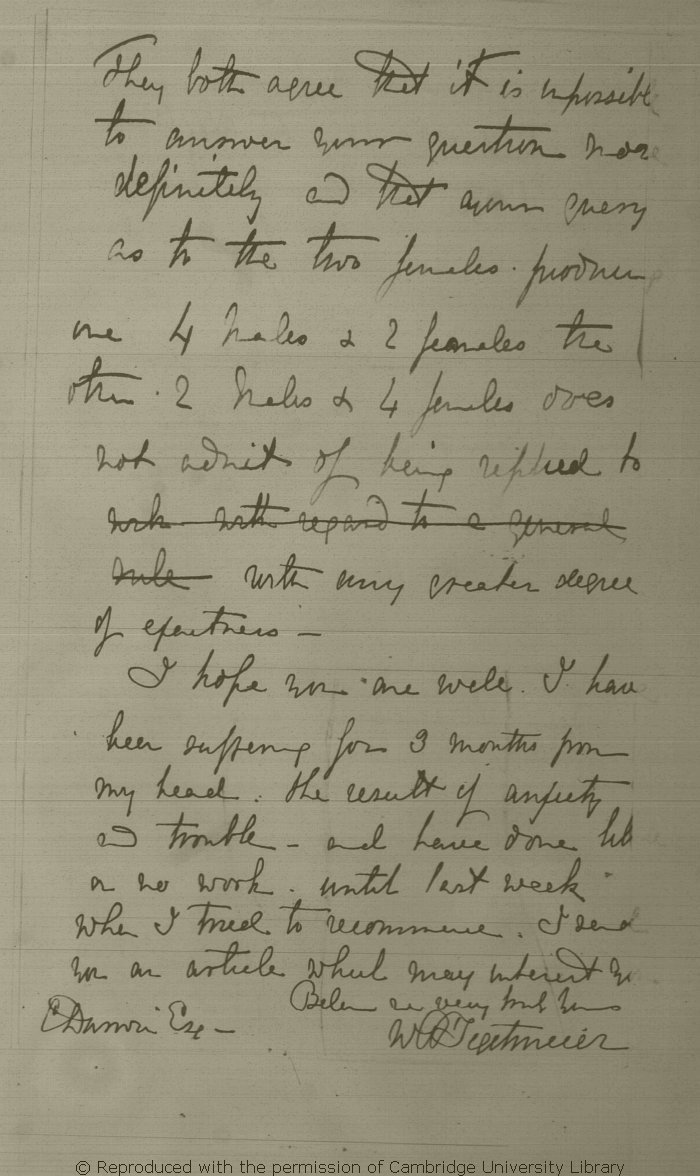 They both agree that it is impossible
to answer your question more
definitely and that your query
as to the two females producing
one 4 males & 2 females the
other 2 males & 4 females does
not admit of being replied to
with regard to a general
rule with any greater degree
of exactness —
I hope you are well. I have
been suffering for 3 months from
my head. the result of anxiety
and trouble – and have done little
or no work. until last week
when I tried to recommence. I send
you an article which may interest you
Believe me very truly yours
C Darwin Esq — W B Tegetmeier
© Reproduced with the permission of Cambridge University Library